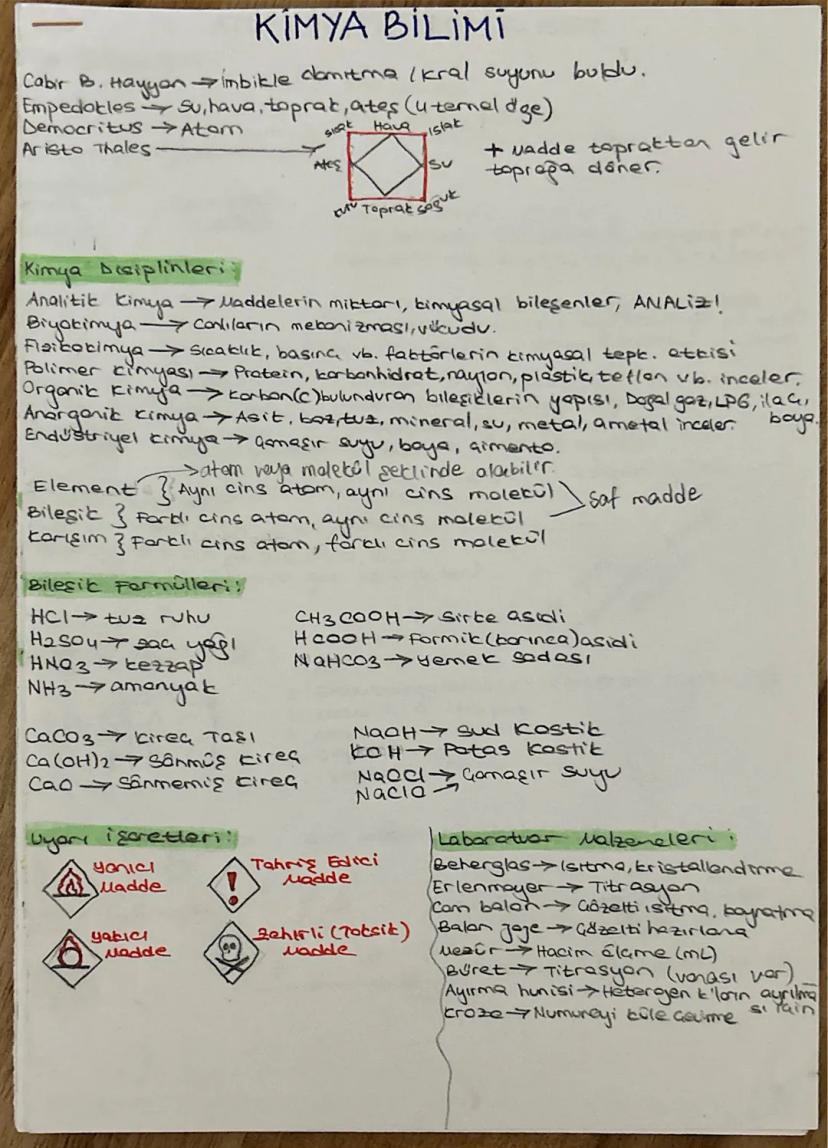 KİMYA BİLİMİ
Cabir B. Hayyan → İmbikle damıtma / Kral suyunu buldu.
Empedokles → Su, hava, toprak, ateş (4 temel öğe)
Democritus → Atom
Aristo Thales →
sıcak Hava ıslak
Ateş Su
kuru Toprak soğuk
+ Madde topraktan gelir
toprağa döner.
Kimya Disiplinleri:
Analitik Kimya → Maddelerin miktarı, kimyasal bileşenler, ANALİZ!
Biyokimya → Canlıların mekanizması, vücudu.
Fizikokimya → Sıcaklık, basınç vb. faktörlerin kimyasal tepk. etkisi
Polimer kimyası → Protein, karbonhidrat, naylon, plastik, teflon vb. inceler.
Organik kimya → Karbon(c) bulunduran bileşiklerin yapısı, Doğal gaz, LPG, ilaç,
boya.
Anorganik kimya → Asit, baz, tuz, mineral, su, metal, ametal inceler.
Endüstriyel kimya → Çamaşır suyu, boya, çimento.
→ atom veya molekül şeklinde olabilir.
Element } Aynı cins atom, aynı cins molekül
Bileşik } Farklı cins atom, aynı cins molekül
saf madde
Karışım } Farklı cins atom, farklı cins molekül
Bileşik Formülleri:
HCl → tuz ruhu
H2SO4 → zaç yağı
HNO3 → kezzap
NH3 → amonyak
CH3COOH → Sirke asidi
HCOOH → Formik (karınca) asidi
NaHCO3 → yemek sodası
CaCO3 → Kireç Taşı
Ca(OH)2 → Sönmüş kireç
CaO → Sönmemiş kireç
NaOH → Sud Kostik
KOH → Potas Kostik
NaOCl → Çamaşır suyu
NaClO →
Uyarı İşaretleri:
Yanıcı
Madde
Tahriş Edici
Madde
!
Yakıcı
Madde
Zehirli (Toksik)
Madde
Laboratuvar Malzemeleri:
Beherglas → Isıtma, kristallendirme
Erlenmayer → Titrasyon
Cam balon → Çözelti ısıtma, kaynatma
Balon joje → Çözelti hazırlama
Mezür → Hacim ölçme (mL)
Büret → Titrasyon (vanası var)
Ayırma hunisi → Heterojen k'ların ayrılma
sı için
Kroze → Numuneyi küle çevirme